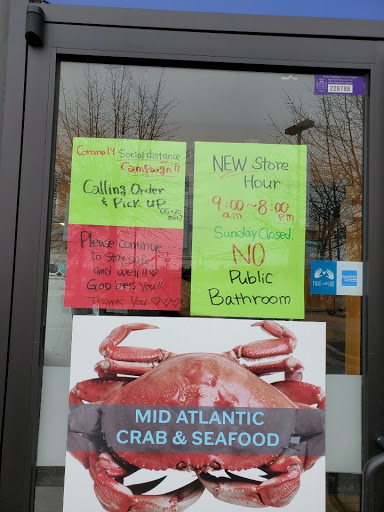 228788
Corona19 Social distance
Campaign!!
Calling Order
& Pick up
NEW Store
Hour
9:00~8:00
am pm
Sunday Closed.
NO
Public
Bathroom
Please continue
to stay safe
and well!!
God bless you!!
Thank you
MID ATLANTIC
CRAB & SEAFOOD